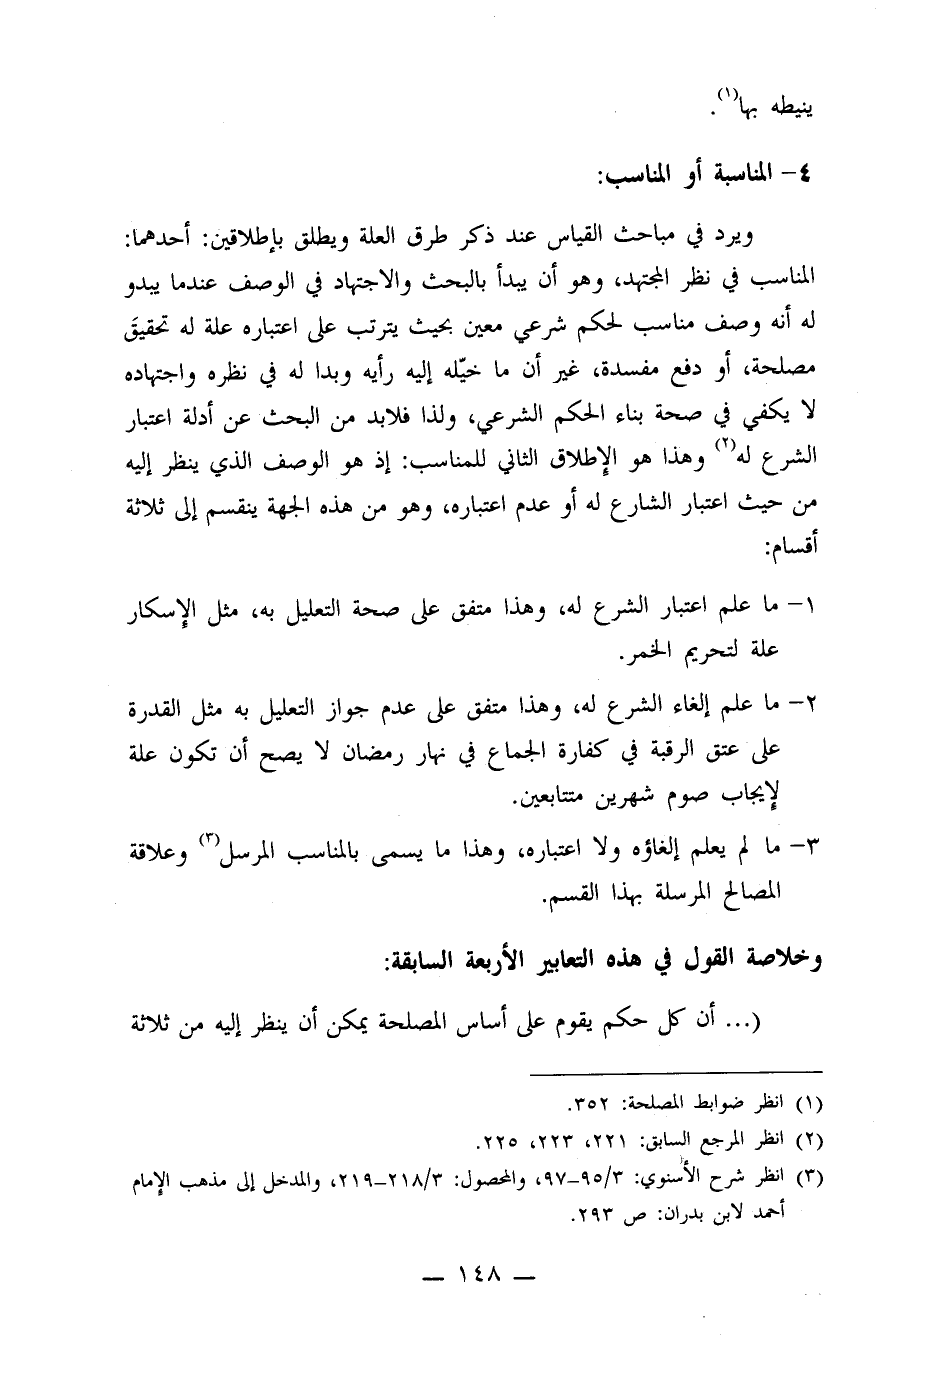 ينيطه بها(١).
٤ـ المناسبة أو المناسب:
ويرد في مباحث القياس عند ذكر طرق العلة ويطلق بإطلاقين: أحدهما:
المناسب في نظر المجتهد، وهو أن يبدأ بالبحث والاجتهاد في الوصف عندما يبدو
له أنه وصف مناسب لحكم شرعي معين بحيث يترتب على اعتباره علة له تحقيقَ
مصلحة، أو دفع مفسدة، غير أن ما خيّله إليه رأيه وبدا له في نظره واجتهاده
لا يكفي في صحة بناء الحكم الشرعي، ولذا فلابد من البحث عن أدلة اعتبار
الشرع له(٢) وهذا هو الإطلاق الثاني للمناسب: إذ هو الوصف الذي ينظر إليه
من حيث اعتبار الشارع له أو عدم اعتباره، وهو من هذه الجهة ينقسم إلى ثلاثة
أقسام:
١ـ ما علم اعتبار الشرع له، وهذا متفق على صحة التعليل به، مثل الإسكار
علة لتحريم الخمر.
٢ـ ما علم إلغاء الشرع له، وهذا متفق على عدم جواز التعليل به مثل القدرة
على عتق الرقبة في كفارة الجماع في نهار رمضان لا يصح أن تكون علة
لإيجاب صوم شهرين متتابعين.
٣ـ ما لم يعلم إلغاؤه ولا اعتباره، وهذا ما يسمى بالمناسب المرسل(٣) وعلاقة
المصالح المرسلة بهذا القسم.
وخلاصة القول في هذه التعابير الأربعة السابقة:
(... أن كل حكم يقوم على أساس المصلحة يمكن أن ينظر إليه من ثلاثة
(١) انظر ضوابط المصلحة: ٣٥٢.
(٢) انظر المرجع السابق: ٢٢١، ٢٢٣، ٢٢٥.
(٣) انظر شرح الأسنوي: ٩٥/٣ـ٩٧، والمحصول: ٢١٨/٣ـ٢١٩، والمدخل إلى مذهب الإمام
أحمد لابن بدران: ص ٢٩٣.
ـ ١٤٨ ـ